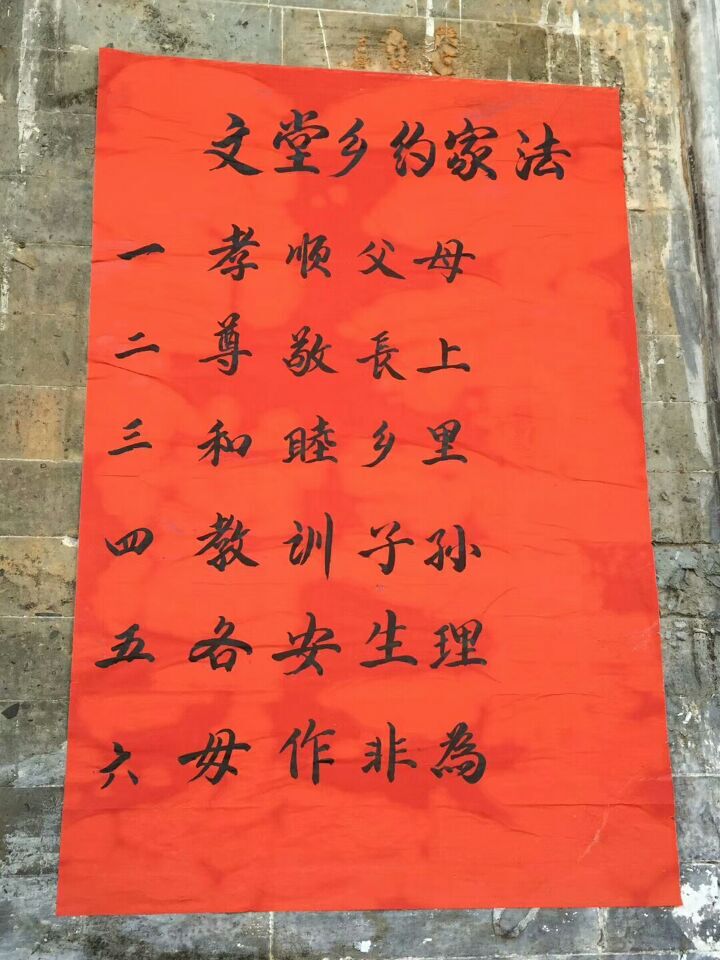 文堂乡约家法
一 孝顺父母
二 尊敬長上
三 和睦乡里
四 教训子孙
五 各安生理
六 毋作非為